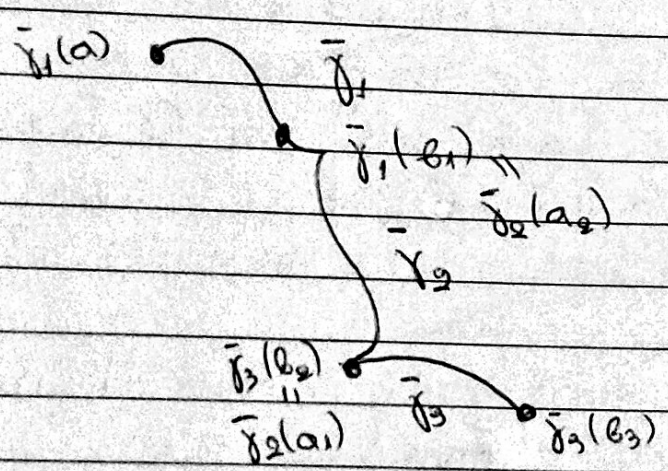 γ̄₁(a)
γ̄₁
γ̄₁(b₁) =
γ̄₂(a₂)
γ̄₂
γ̄₃(b₂)
=
γ̄₂(a₁)
γ̄₃
γ̄₃(b₃)